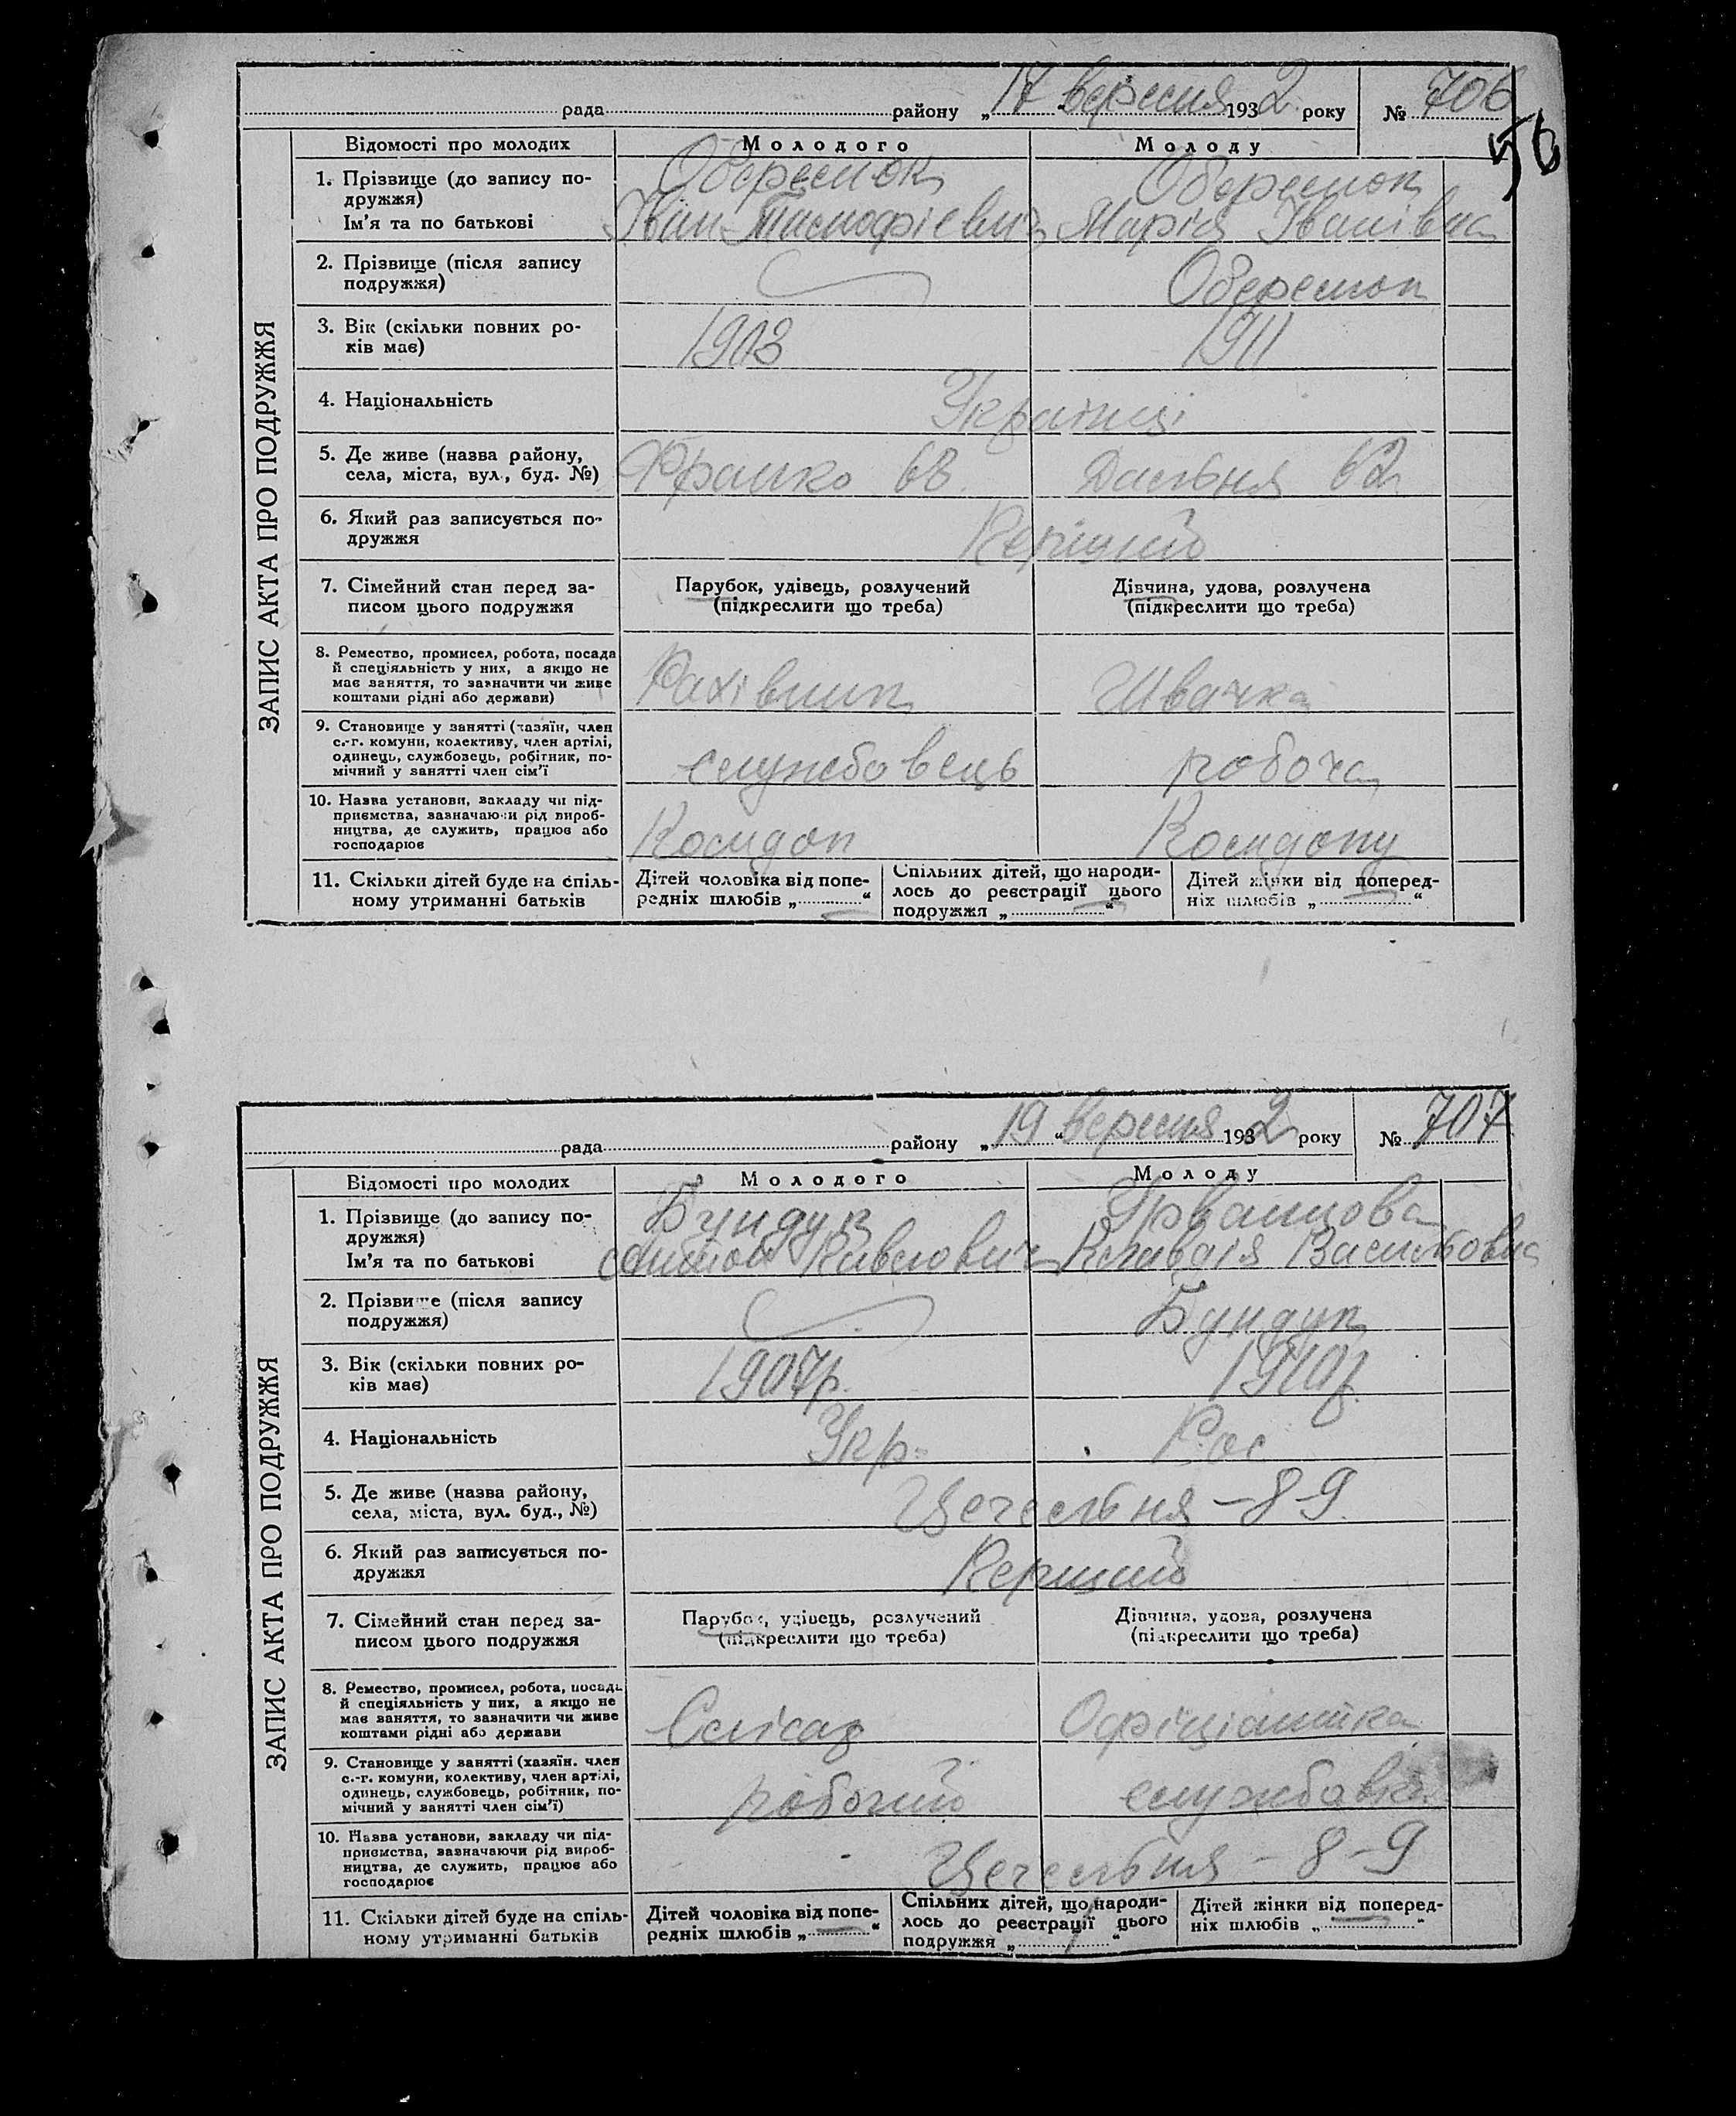 рада району „17 вересня 1932 року № 706
56
ЗАПИС АКТА ПРО ПОДРУЖЖЯ
Відомості про молодих Молодого Молоду
1. Прізвище (до запису по-
дружжя)
Ім'я та по батькові
Іван Марія Іванівна
2. Прізвище (після запису
подружжя)
3. Вік (скільки повних ро-
ків має) 1903 1911
4. Національність Українці
5. Де живе (назва району,
села, міста, вул., буд. №) Франко 68. Дальня 62
6. Який раз записується по-
дружжя Перший
7. Сімейний стан перед за-
писом цього подружжя
Парубок, удівець, розлучений
(підкреслити що треба)
Дівчина, удова, розлучена
(підкреслити що треба)
8. Ремество, промисел, робота, посада
й спеціяльність у них, а якщо не
має заняття, то зазначити чи живе
коштами рідні або держави)
Рахівник Швачка
9. Становище у занятті (хазяїн, член
с.-г. комуни, колективу, член артілі,
одинець, службовець, робітник, по-
мічний у занятті член сім'ї
службовець робоча
10. Назва установи, закладу чи під-
приємства, зазначаючи рід вироб-
ництва, де служить, працює або
господарює
11. Скільки дітей буде на спіль-
ному утриманні батьків
Дітей чоловіка від попе-
редніх шлюбів „ “
Спільних дітей, що народи-
лось до реєстрації цього
подружжя „ “
Дітей жінки від поперед-
ніх шлюбів „ “
рада району „19“ вересня 1932 року № 707
ЗАПИС АКТА ПРО ПОДРУЖЖЯ
Відомості про молодих Молодого Молоду
1. Прізвище (до запису по-
дружжя)
Ім'я та по батькові
Бундук Урванцова
Павлович Клавдія Васильовна
2. Прізвище (після запису
подружжя) Бундук
3. Вік (скільки повних ро-
ків має) 1907р. 1910р.
4. Національність Укр. Рос
5. Де живе (назва району,
села, міста, вул. буд., №) – 8-9.
6. Який раз записується по-
дружжя Перший
7. Сімейний стан перед за-
писом цього подружжя
Парубок, удівець, розлучений
(підкреслити що треба)
Дівчина, удова, розлучена
(підкреслити що треба)
8. Ремество, промисел, робота, посада
й спеціяльність у них, а якщо не
має заняття, то зазначити чи живе
коштами рідні або держави
Слісар Офіціантка
9. Становище у занятті (хазяїн. член
с.-г. комуни, колективу, член артілі,
одинець, службовець, робітник, по-
мічний у занятті член сім'ї)
робочий службовка
10. Назва установи, закладу чи під-
приємства, зазначаючи рід вироб-
ництва, де служить, працює або
господарює
– 8-9
11. Скільки дітей буде на спіль-
ному утриманні батьків
Дітей чоловіка від попе-
редніх шлюбів „ “
Спільних дітей, що народи-
лось до реєстрації цього
подружжя „ “
Дітей жінки від поперед-
ніх шлюбів „ “